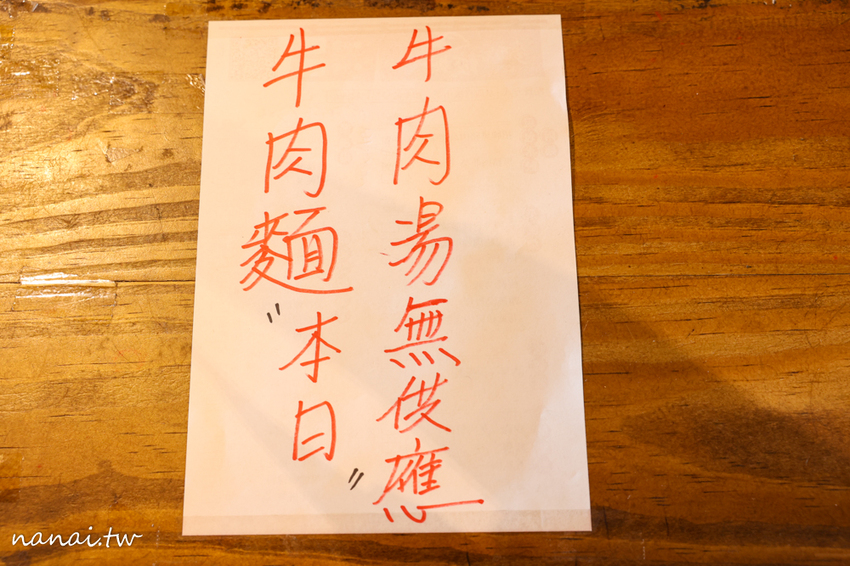 牛肉湯無供應
牛肉麵"本日"
nanai.tw